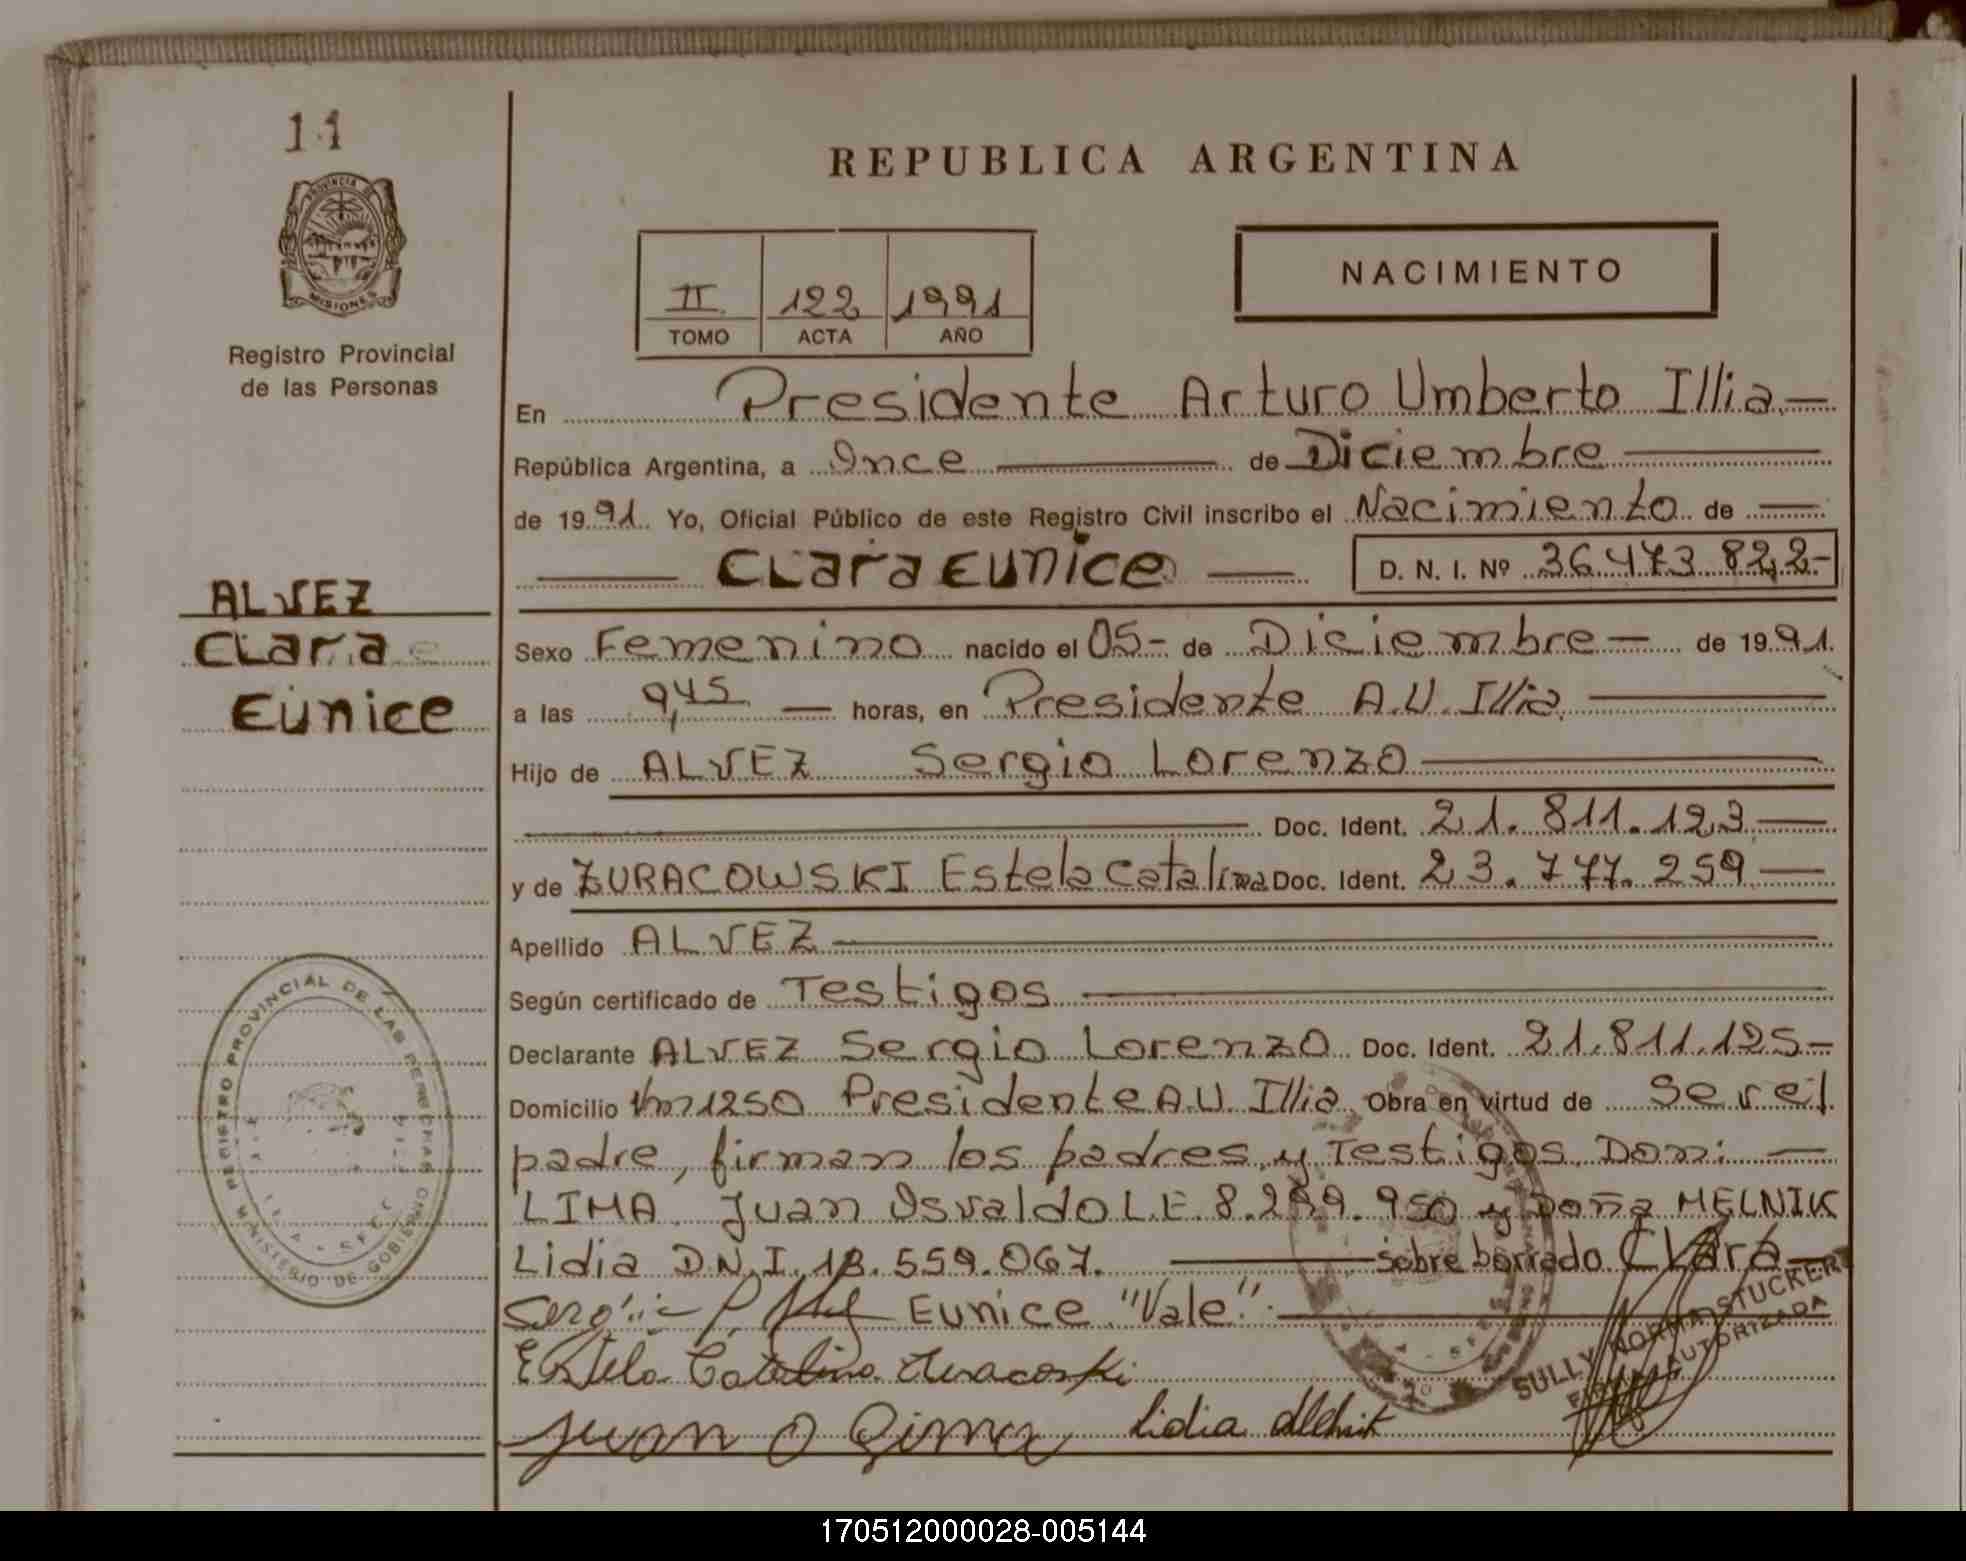 11
PROVINCIA DE
MISIONES
Registro Provincial
de las Personas
ALVEZ
CLara
Eunice
REGISTRO PROVINCIAL DE LAS PERSONAS
MINISTERIO DE GOBIERNO
REPUBLICA ARGENTINA
II 122 1991
TOMO ACTA AÑO
NACIMIENTO
En Presidente Arturo Umberto Illia.—
República Argentina, a Once — de Diciembre —
de 1991. Yo, Oficial Público de este Registro Civil inscribo el Nacimiento de —
— CLara Eunice — D. N. I. Nº 36.473.822-
Sexo Femenino nacido el 05- de Diciembre — de 1991.
a las 9,45 — horas, en Presidente A.U. Illia. —
Hijo de ALVEZ Sergio Lorenzo —
— Doc. Ident. 21.811.123 —
y de ZURACOWSKI Estela Catalina Doc. Ident. 23.777.259 —
Apellido ALVEZ —
Según certificado de Testigos —
Declarante ALVEZ Sergio Lorenzo Doc. Ident. 21.811.125-
Domicilio Km 1250 Presidente A.U. Illia. Obra en virtud de Ser el
padre, firman los padres y Testigos Don: —
LIMA Juan Osvaldo L.E. 8.299.950 y Doña MELNIK
Lidia D.N.I. 13.559.067. — sobre borrado CLara —
Eunice "Vale". —
Estela Catalina
Juan O Lima Lidia Melnik
SULLY NORMA STUCKER
FIRMA AUTORIZADA
170512000028-005144